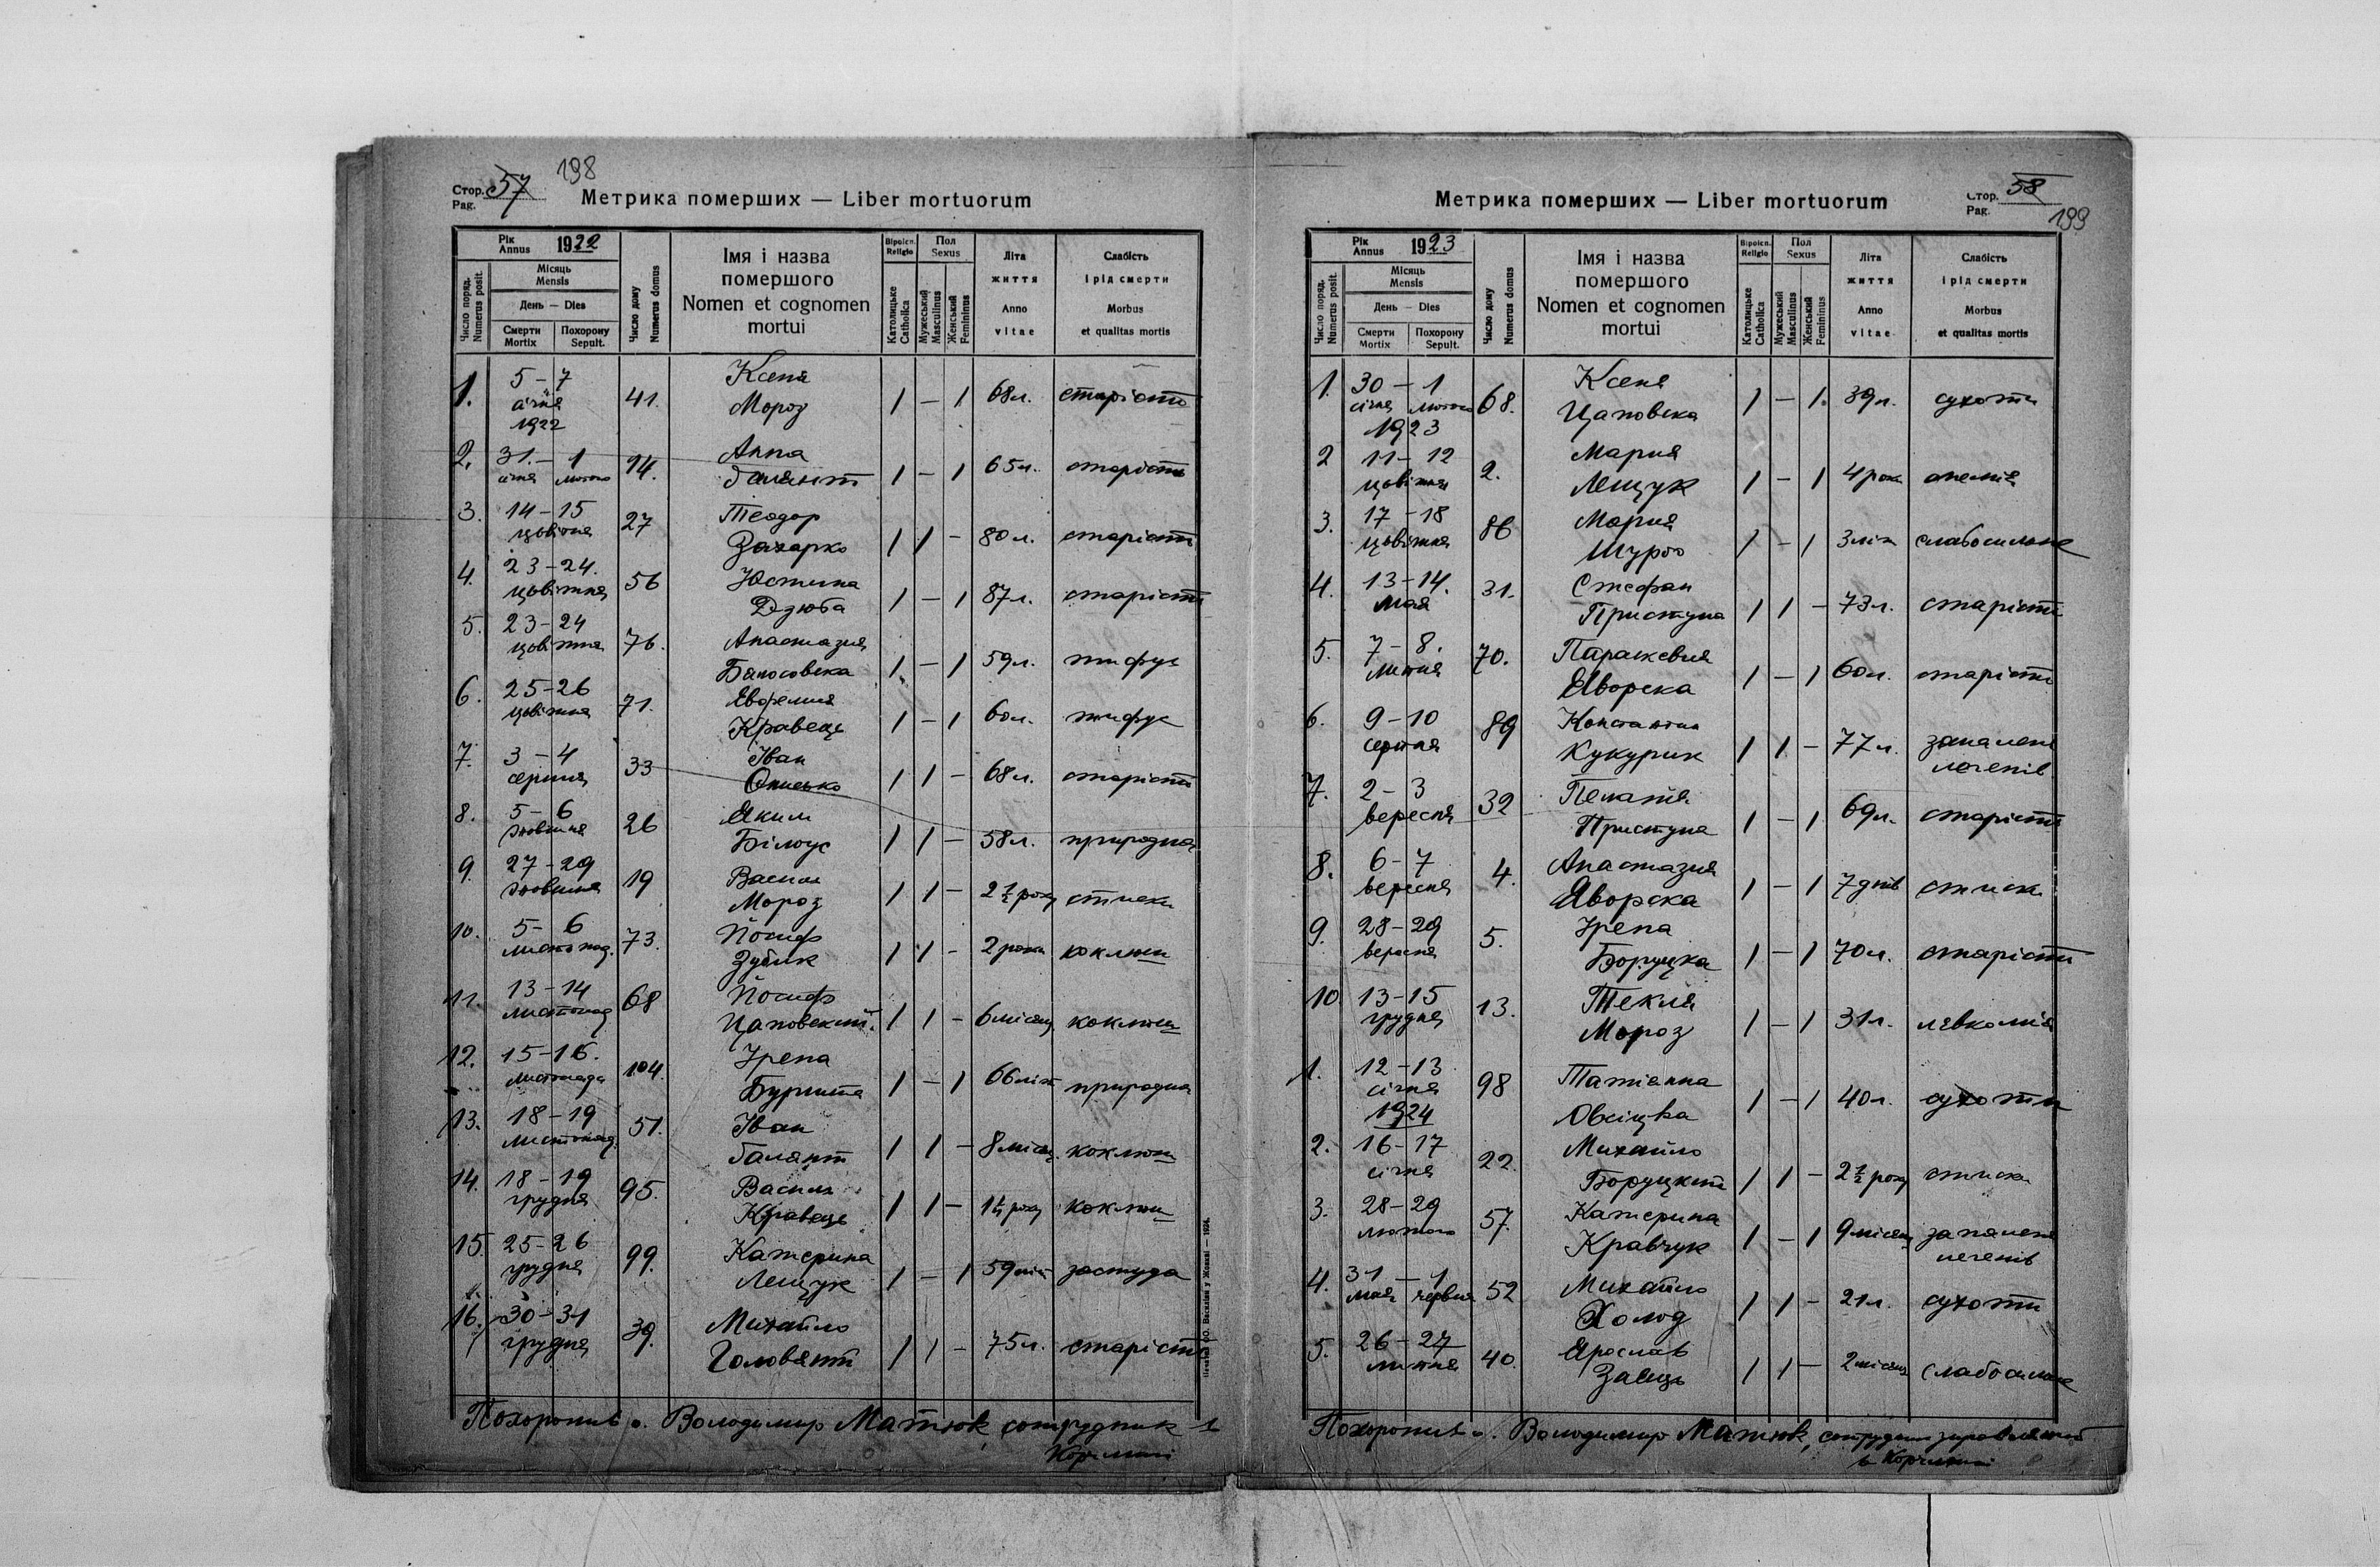 198
Стор. 57
Pag.
Метрика померших — Liber mortuorum
Число поряд. Numerus posit.
Рік Annus 1922
Місяць Mensis
День — Dies
Смерти Mortix
Похорону Sepult.
Число дому Numerus domus
Імя і назва помершого
Nomen et cognomen mortui
Віроісп. Religio
Католицьке Catholica
Пол Sexus
Мужеський Masculinus
Женський Femininus
Літа життя
Anno vitae
Слабість і рід смерти
Morbus et qualitas mortis
1. 5 – 7 січня 1922 41. Ксеня Мороз 1 – 1 68 л. старість
2. 31. – 1 січня лютого 94. Анна Галянт 1 – 1 65 л. старість
3. 14 – 15 цьвітня 27 Теодор Захарко 1 1 – 80 л. старість
4. 23 – 24. цьвітня 56 Юстина Дзюба 1 – 1 87 л. старість
5. 23 – 24 цьвітня 76. Анастазия 1 – 1 59 л. тифус
6. 25 – 26 цьвітня 71. Евфемия Кравець 1 – 1 60 л. тифус
7. 3 – 4 серпня 33 Іван Онисько 1 1 – 68 л. старість
8. 5 – 6 жовтня 26 Яким Білоус 1 1 – 58 л. природна
9. 27 – 29 жовтня 19 Василь Мороз 1 1 – 2½ року стиски
10. 5 – 6 листопад. 73. Йосиф Зубик 1 1 – 2 роки коклюш
11. 13 – 14 листопад 68 Йосиф Цаповский. 1 1 – 6 місяц коклюш
12. 15 – 16. листопада 104. Ірена 1 – 1 66 літ природна
13. 18 – 19 листопад. 51. Іван Галянт 1 1 – 8 місяц. коклюш
14. 18 – 19 грудня 95. Василь Кравець 1 1 – року коклюш
15. 25 – 26 грудня 99. Катерина Лещук 1 – 1 59 літ застуда
16. 30 – 31 грудня 39. Михайло Головянт 1 1 – 75 л. старість
Похоронив о. Володимир Матюк, сотрудник в
Корчмині
Метрика померших — Liber mortuorum
Стор. 58
Pag.
199
Число поряд. Numerus posit.
Рік Annus 1923
Місяць Mensis
День — Dies
Смерти Mortix
Похорону Sepult.
Число дому Numerus domus
Імя і назва помершого
Nomen et cognomen mortui
Віроісп. Religio
Католицьке Catholica
Пол Sexus
Мужеський Masculinus
Женський Femininus
Літа життя
Anno vitae
Слабість і рід смерти
Morbus et qualitas mortis
1. 30 – 1 січня лютого 1923 68. Ксеня Цаповска 1 – 1. 39 л. сухоти
2 11 – 12 цьвітня 2. Мария Лещук 1 – 1 4 роки анемія
3. 17 – 18 цьвітня 86 Мария Щуро 1 – 1 3 літ слабосильне
4. 13 – 14. мая 31. Стефан Приступа 1 1 – 73 л. старість
5. 7 – 8. липня 70. Параскевия Яворска 1 – 1 60 л. старість
6. 9 – 10 серпня 89 Константин Кукурик 1 1 – 77 л. запаленє легенів
7. 2 – 3 вересня 32 Пелагія Приступа 1 – 1 69 л. старість
8. 6 – 7 вересня 4. Анастазия Яворска 1 – 1 7 днів стиски
9. 28 – 29 вересня 5. Ірена Боруцка 1 – 1 70 л. старість
10 13 – 15 грудня 13. Текля Мороз 1 – 1 31 л. левкемія
1. 12 – 13 січня 1924 98 Татіанна Овсіцка 1 – 1 40 л. сухоти
2. 16 – 17 січня 22. Михайло Боруцкий 1 1 – 2½ року стиски
3. 28 – 29 лютого 57. Катерина Кравчук 1 – 1 9 місяц запаленє легенів
4. 31 – 1 мая червня 52 Михайло Холод 1 1 – 21 л. сухоти
5. 26 – 27 липня 40. Ярослав Заяць 1 1 – 2 місяц слабосильне
Похоронив о. Володимир Матюк, сотрудник
в Корчмині